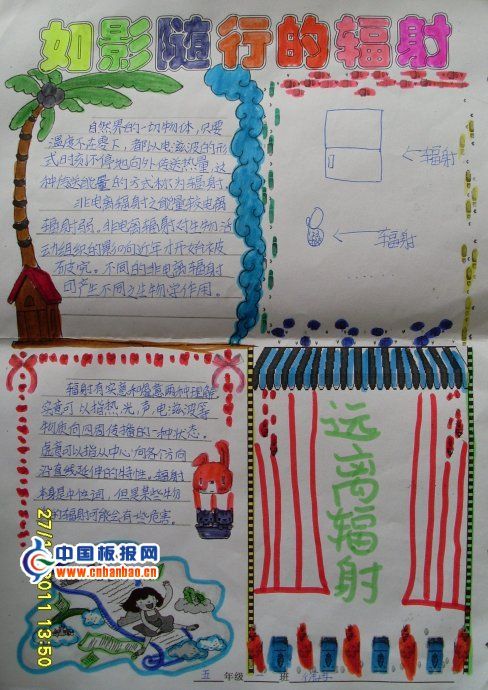 如影随行的辐射
自然界的一切物体，只要
温度不在零下，都以电磁波的形
式时刻不停地向外传送热量，这
种传送能量的方式称为辐射。
非电离辐射之能量较电离
辐射弱。非电离辐射对生物活
动组织的影响近年才开始被
研究。不同的非电离辐射
可产生不同之生物学作用。
辐射
辐射
辐射有实意和虚意两种理解，
实意可以指热、光、声、电磁波等
物质向四周传播的一种状态。
虚意可以指从中心向各个方向
沿直线延伸的特性。辐射
本身是中性词，但是某些
的辐射可能会有些危害。
远离辐射
中国板报网
www.cnbanbao.cn
2011 13:50
五 年级 二 班